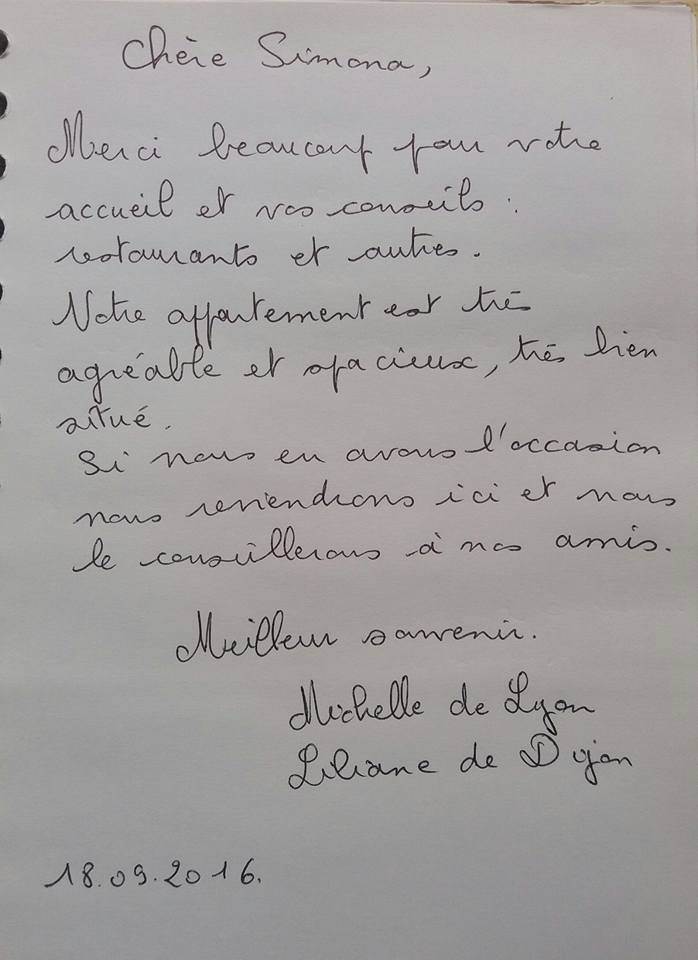 Chère Simona,
Merci beaucoup pour votre
accueil et vos conseils :
restaurants et autres.
Notre appartement est très
agréable et spacieux, très bien
situé.
Si nous en avons l'occasion
nous reviendrons ici et nous
le conseillerons à nos amis.
Meilleur souvenir.
Michelle de Lyon
Liliane de Dijon
18.09.2016.